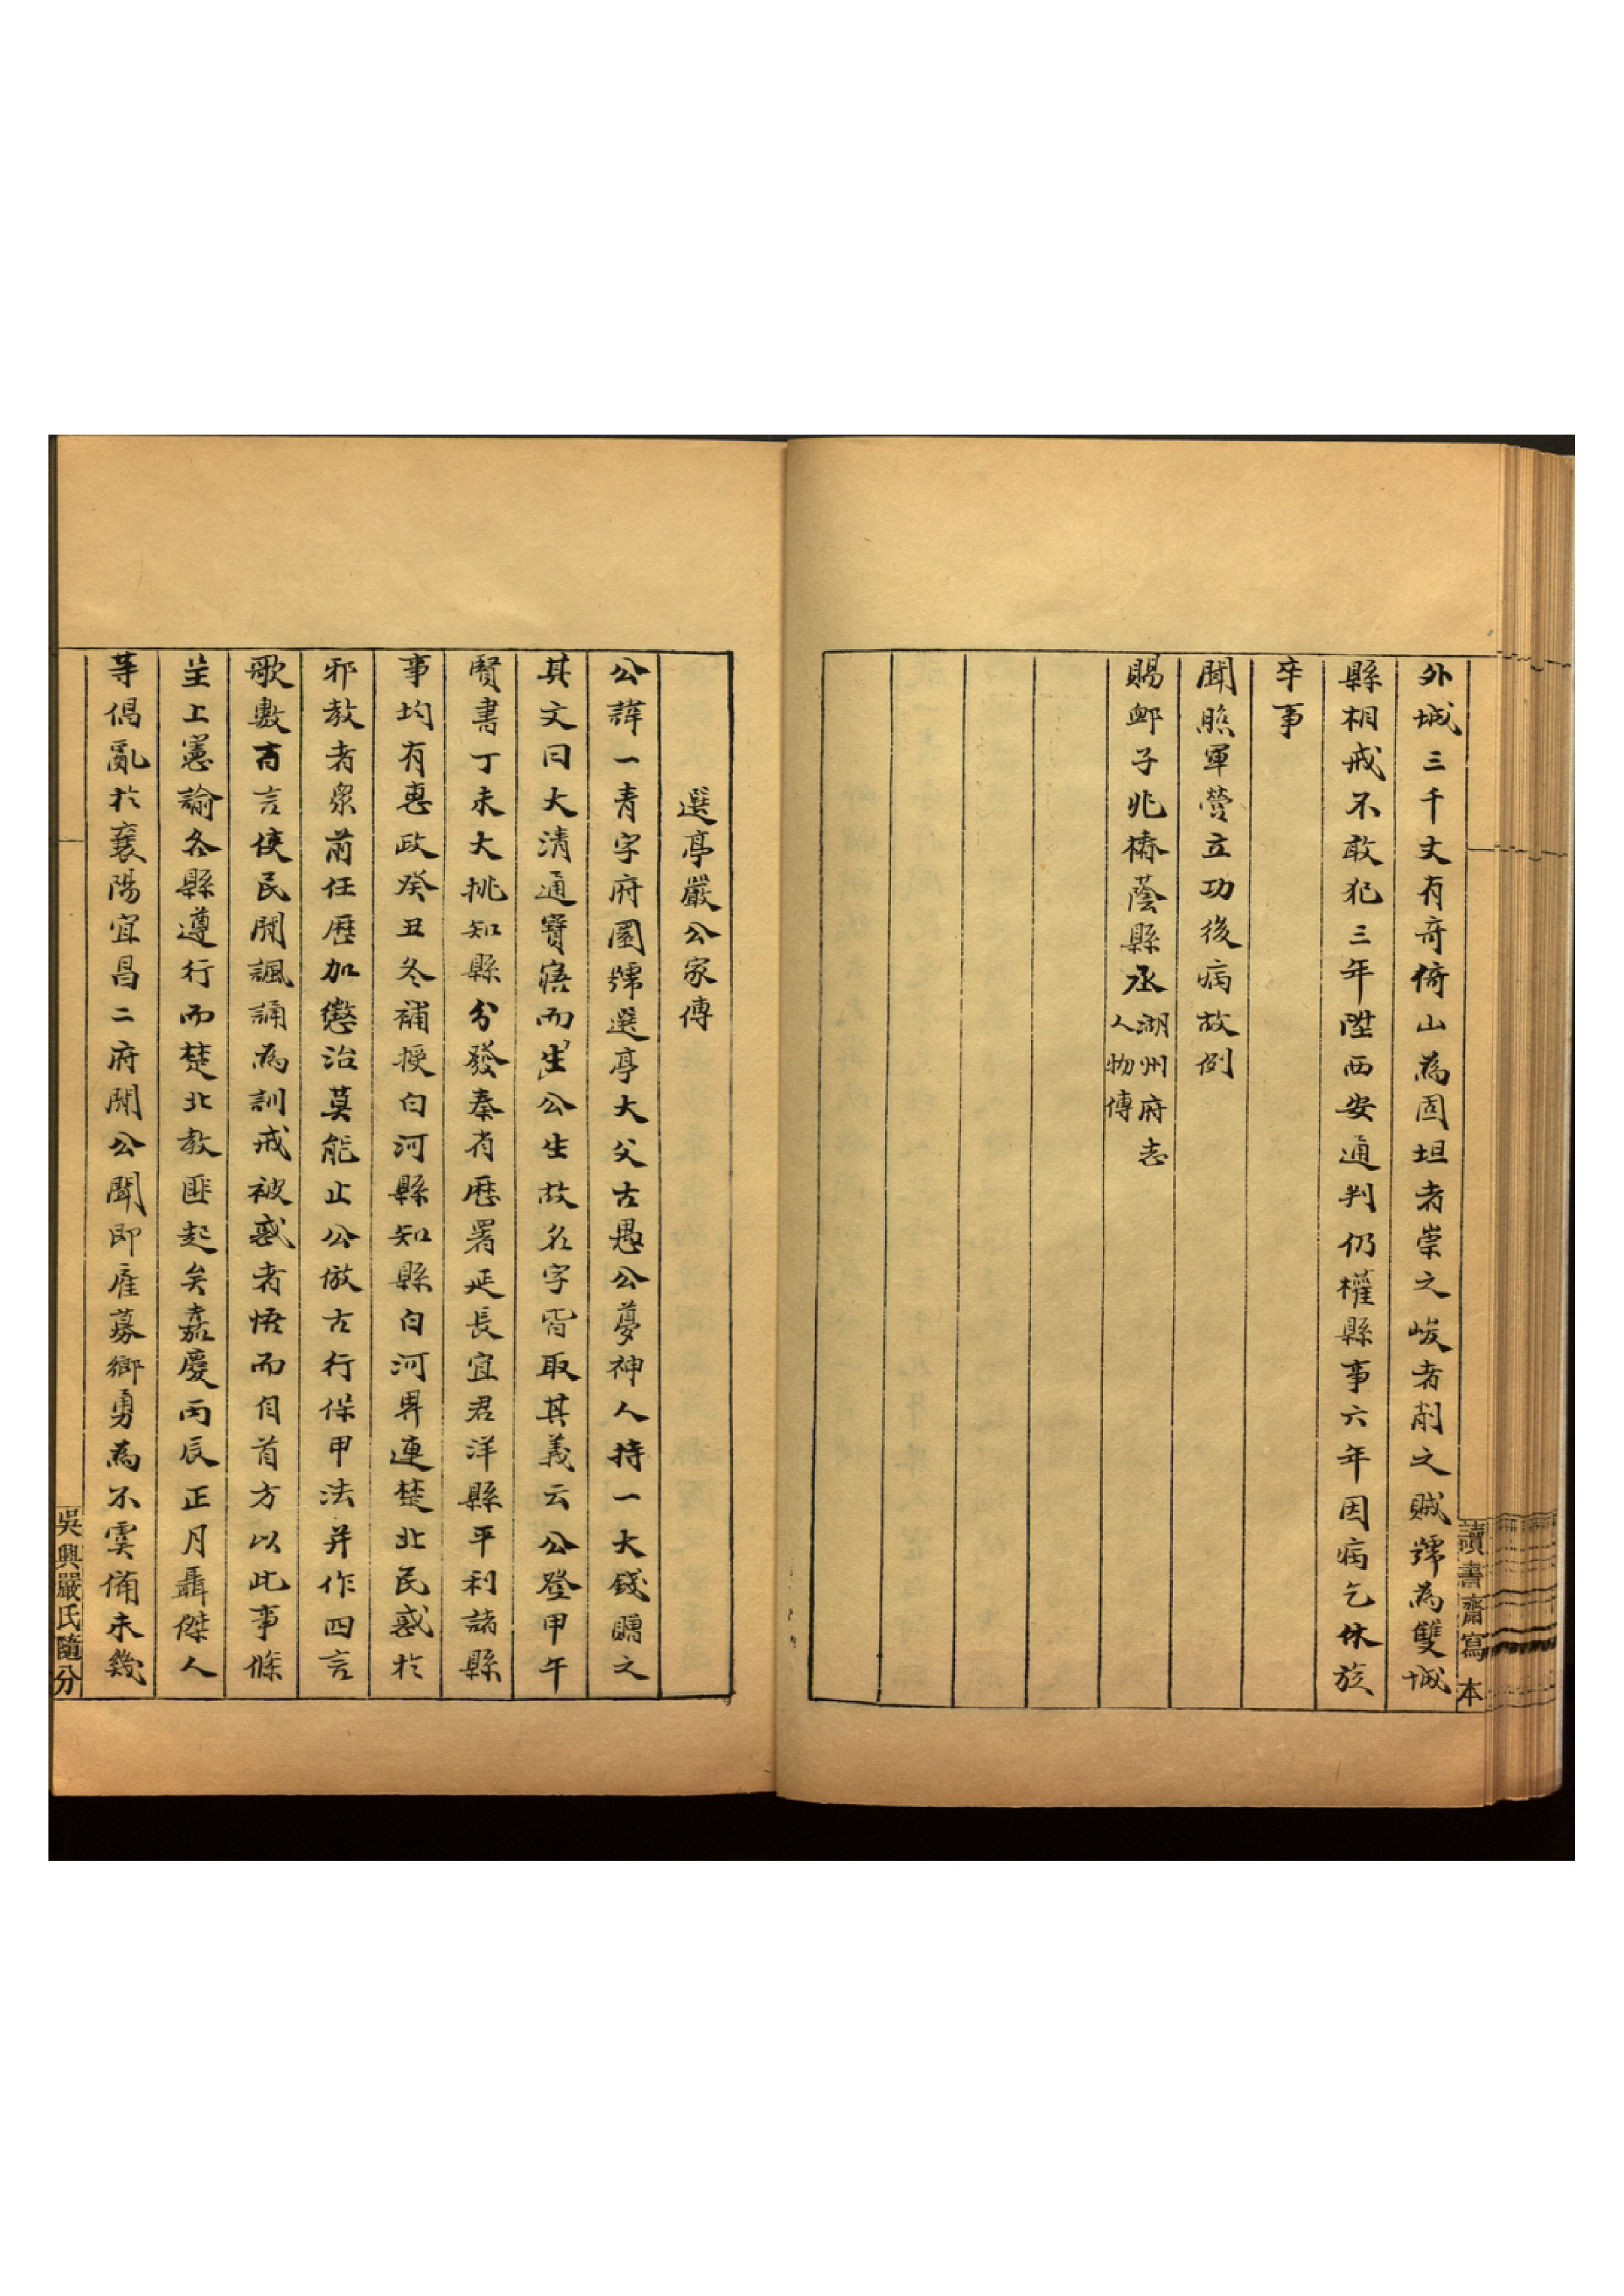 外城三千丈有奇倚山為固坦者崇之峻者削之賊歸為雙城
縣相戒不敢犯三年陞西安通判仍權縣事六年因病乞休旋
卒事
聞照軍營立功後病故例
賜卹子兆橋蔭縣丞湖州府志
人物傳
讀書齋寫本
選亭嚴公家傳
公諱一青字府圜號選亭大父古愚公夢神人持一大錢贈之
其文曰大清通寶寤而生公生故名字皆取其義云公登甲午
賢書丁未大挑知縣分發秦省歷署延長宜君洋縣平利諸縣
事均有惠政癸丑冬補授白河縣知縣白河界連楚北民惑於
邪教者衆前任歷加懲治莫能止公倣古行保甲法并作四言
歌數百言使民間諷誦為訓戒被惑者悟而自首方以此事條
呈上憲諭各縣遵行而楚北教匪起矣嘉慶丙辰正月聶傑人
等倡亂於襄陽宜昌二府間公聞即雇募鄉勇為不虞備未幾
吳興嚴氏隨分